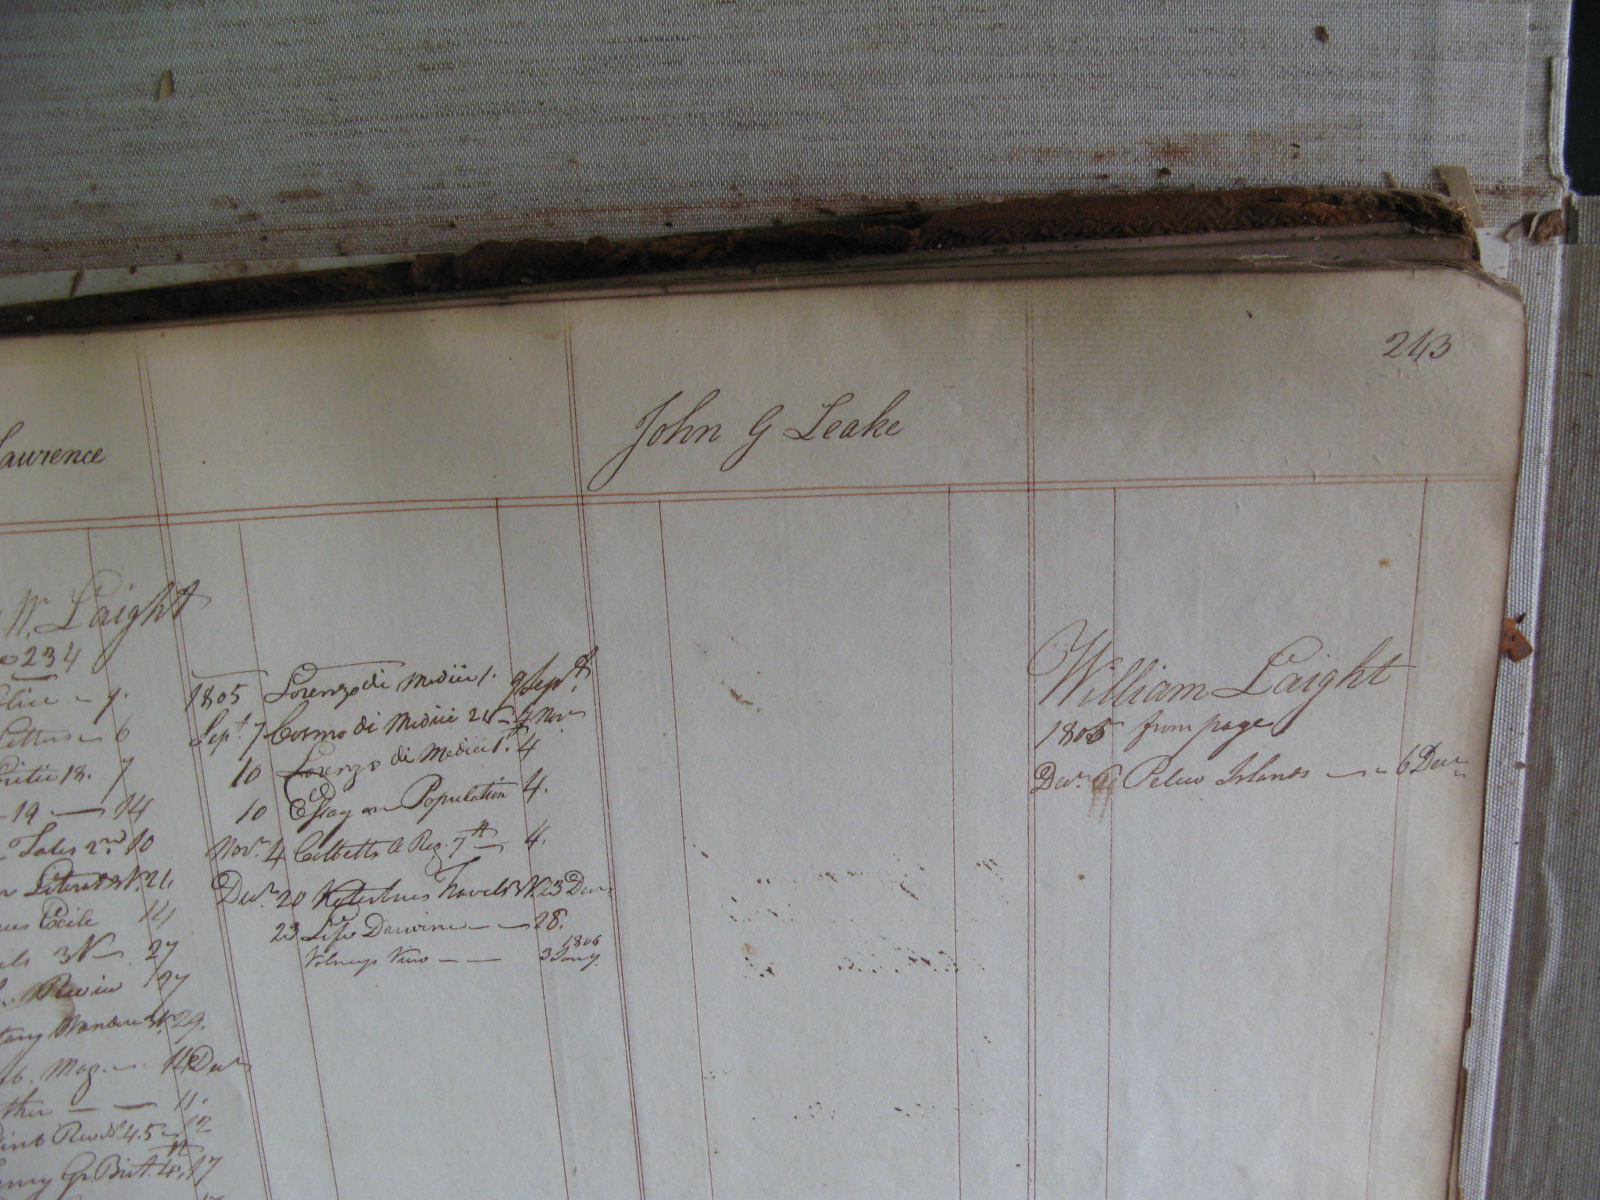 243
Lawrence
John G Leake
W. Laight
234
7.
Letters 6
Critic 18. 7
19 — 14
Tales 2nd 10
Literat 3 V. 21.
Cecile 14
3 V — 27
Review 27
Wanderer 3 V. 29.
Mag. 11 Decr
11.
Rev. No. 4.5 — 12
Gr. Brit. 4th 17
1805 Lorenzo di Medici 1. 9 Sept.
Sept. 7 Cosmo di Medici 2 V — 7 Nov
10 Lorenzo di Medici 1st. 4
10 Essay on Population 4.
Novr. 4 Cobbetts Reg. 7th — 4.
Decr. 20 Kotzebues Travels 3 V. 23 Decr
23 Life Darwin — — 28.
Volneys View — — 1806 3 Jany
William Laight
1805 from page
Decr. 6 Pelew Islands — 6 Decr